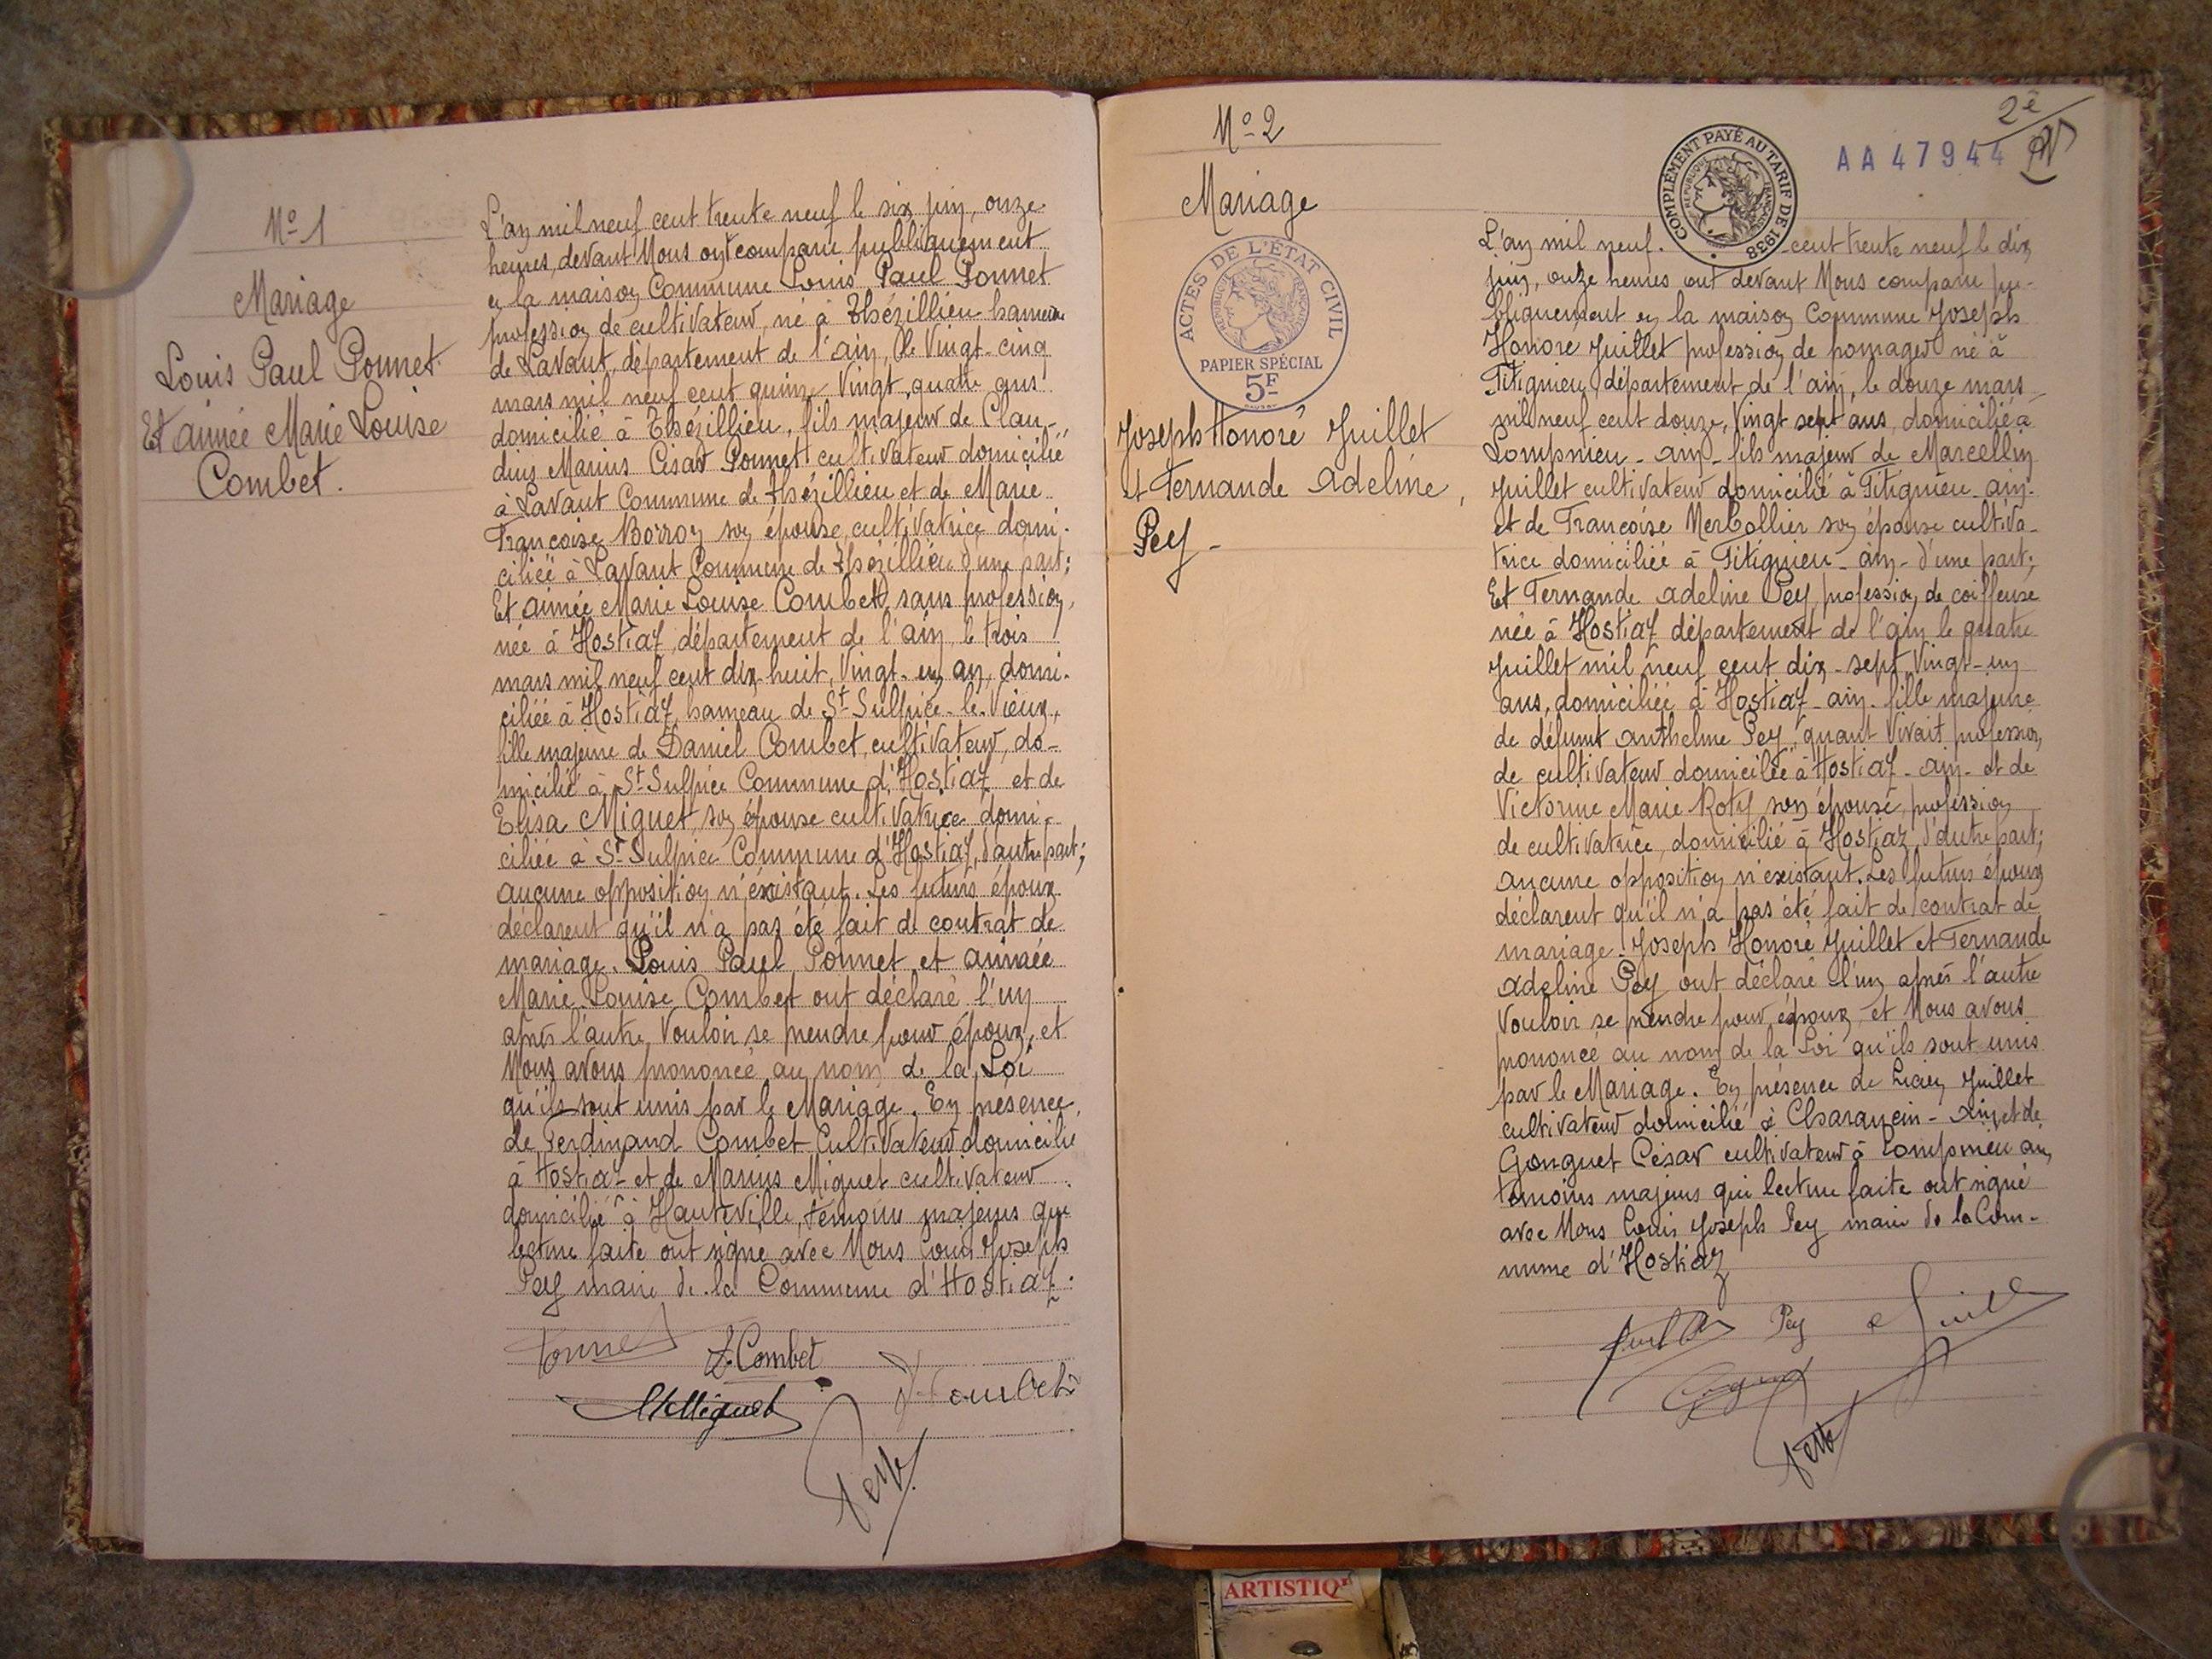 N° 1
Mariage
Louis Paul Ponnet
Et aimée Marie Louise
Combet.
L'an mil neuf cent trente neuf le six juin, onze
heures, devant Nous ont comparu publiquement
en la maison Commune Louis Paul Ponnet
profession de cultivateur, né à Thézillieu hameau
de Lavant, département de l'ain, le Vingt-cinq
mars mil neuf cent quinze Vingt-quatre ans
domicilié à Thézillieu, fils majeur de Clau-
dius Marius César Ponnet cultivateur domicilié
à Lavant Commune de Thézillieu et de Marie
Françoise Borron son épouse cultivatrice domi-
ciliée à Lavant Commune de Thézillieu d'une part;
Et aimée Marie Louise Combet, sans profession,
née à Hostiaz, département de l'ain, le trois
mars mil neuf cent dix huit, Vingt-un an, domi-
ciliée à Hostiaz, hameau de St Sulpice-le-Vieux,
fille majeure de Daniel Combet, cultivateur, do-
micilié à St Sulpice Commune d'Hostiaz et de
Elisa Miguet, son épouse cultivatrice domi-
ciliée à St Sulpice Commune d'Hostiaz, d'autre part;
aucune opposition n'existant. Les futurs époux
déclarent qu'il n'a pas été fait de contrat de
mariage. Louis Paul Ponnet et aimée
Marie Louise Combet ont déclaré l'un
après l'autre Vouloir se prendre pour époux, et
Nous avons prononcé au nom de la Loi
qu'ils sont unis par le Mariage. En présence
de Ferdinand Combet Cultivateur domicilié
à Hostiaz et de Marius Miguet cultivateur
domicilié à Hauteville, témoins majeurs qui
lecture faite ont signé avec Nous Louis Joseph
Pey maire de la Commune d'Hostiaz.
Ponnet
L. Combet
Combet
M Miguet
Pey
N° 2
Mariage
ACTES DE L'ÉTAT CIVIL
RÉPUBLIQUE FRANÇAISE
PAPIER SPÉCIAL
5F
Joseph Honoré Juillet
et Fernande Adeline
Pey
2e
COMPLÉMENT PAYÉ AU TARIF DE 1938
RÉPUBLIQUE FRANÇAISE
AA 47944
L'an mil neuf cent trente neuf le dix
juin, onze heures ont devant Nous comparu pu-
bliquement en la maison Commune Joseph
Honoré Juillet profession de fromager né à
Fitignieu, département de l'ain, le douze mars
mil neuf cent douze, Vingt sept ans, domicilié à
Lompnieu - ain - fils majeur de Marcellin
Juillet cultivateur domicilié à Fitignieu - ain -
et de Françoise Merlollier son épouse cultiva-
trice domiciliée à Fitignieu - ain - d'une part;
Et Fernande Adeline Pey, profession de coiffeuse
née à Hostiaz département de l'ain le quatre
Juillet mil neuf cent dix-sept Vingt-un
ans, domiciliée à Hostiaz - ain - fille majeure
de défunt Anthelme Pey, quant Vivait profession
de cultivateur domicilée à Hostiaz - ain - et de
Victorine Marie Roty son épouse, profession
de cultivatrice, domicilié à Hostiaz, d'autre part;
aucune opposition n'existant. Les futurs époux
déclarent qu'il n'a pas été fait de contrat de
mariage. Joseph Honoré Juillet et Fernande
Adeline Pey ont déclaré l'un après l'autre
Vouloir se prendre pour époux, et Nous avons
prononcé au nom de la Loi qu'ils sont unis
par le Mariage. En présence de Lucien Juillet
cultivateur domicilié à Charancin - ain et de
Gonguet César cultivateur à Lompnieu ain,
témoins majeurs qui lecture faite ont signé
avec Nous Louis Joseph Pey maire de la Com-
mune d'Hostiaz
Pey
Juillet
Pey